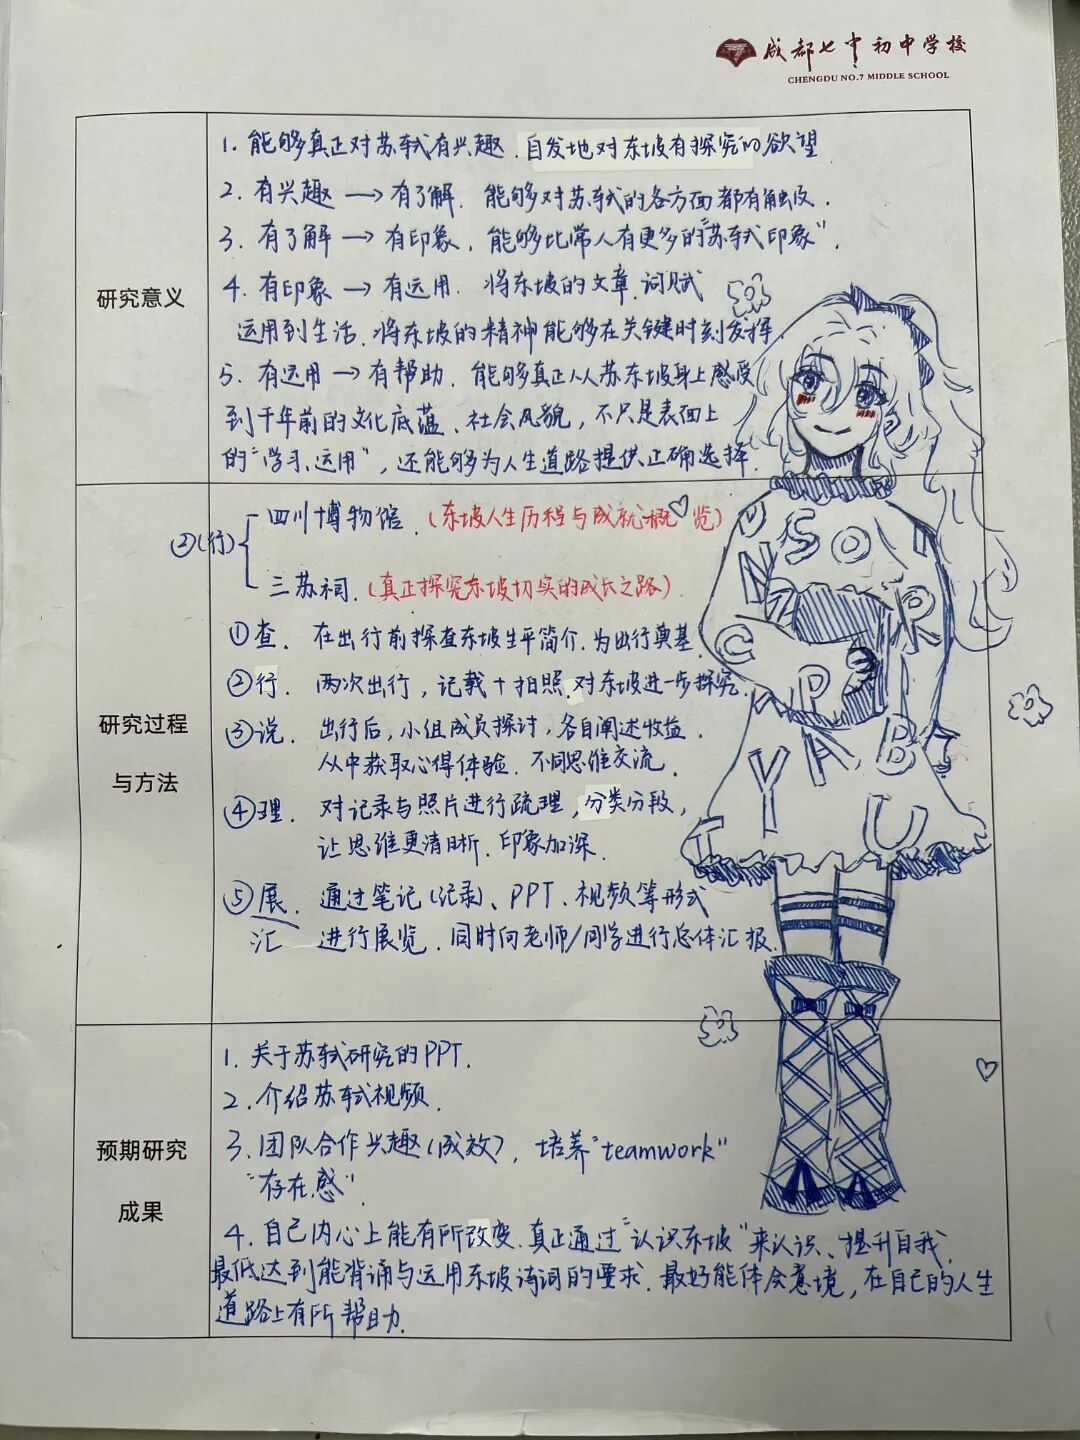 成都七中初中学校
CHENGDU NO.7 MIDDLE SCHOOL
研究意义
1. 能够真正对苏轼有兴趣.自发地对东坡有探究的欲望
2. 有兴趣→有了解.能够对苏轼的各方面都有触及.
3. 有了解→有印象,能够比常人有更多的"苏轼印象".
4. 有印象→有运用.将东坡的文章.词赋
运用到生活.将东坡的精神能够在关键时刻发挥
5. 有运用→有帮助.能够真正从苏东坡身上感受
到千年前的文化底蕴、社会风貌,不只是表面上
的"学习、运用",还能够为人生道路提供正确选择.
研究过程
与方法
②(行)
四川博物馆.(东坡人生历程与成就概览)
三苏祠.(真正探究东坡切实的成长之路).
①查. 在出行前探查东坡生平简介.为出行奠基.
②行. 两次出行,记载+拍照.对东坡进一步探究.
③说. 出行后,小组成员探讨,各自阐述收益.
从中获取心得体验.不同思维交流.
④理. 对记录与照片进行疏理,分类分段,
让思维更清晰.印象加深.
⑤展. 通过笔记(记录)、PPT、视频等形式
汇 进行展览.同时向老师/同学进行总体汇报.
U S O I
N Z R
C P I
Y A B
T Y U
预期研究
成果
1. 关于苏轼研究的PPT.
2. 介绍苏轼视频.
3. 团队合作兴趣(成效),培养"teamwork"
"存在感".
4. 自己内心上能有所改变.真正通过"认识东坡"来认识、提升自我.
最低达到能背诵与运用东坡诗词的要求.最好能体会意境,在自己的人生
道路上有所帮助.